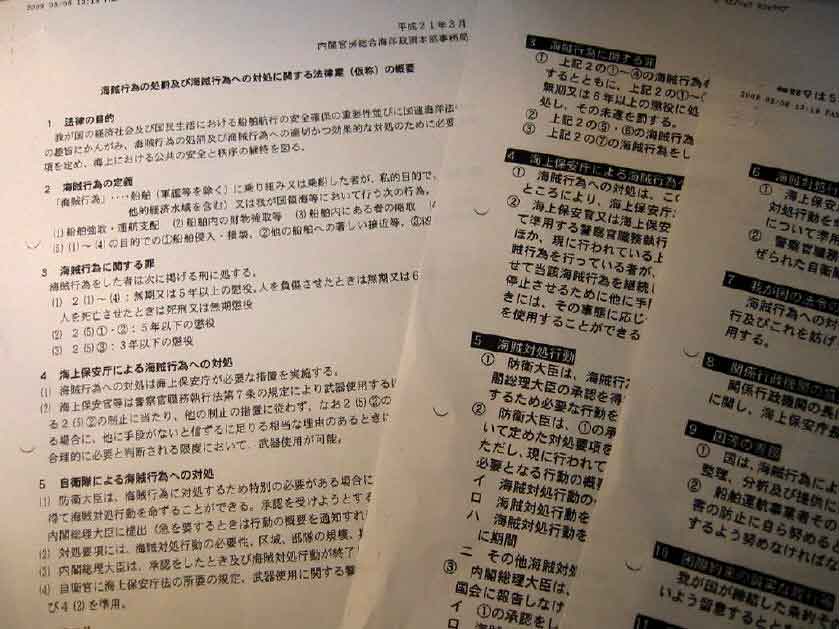 平成21年3月
内閣官房総合海洋政策本部事務局
海賊行為の処罰及び海賊行為への対処に関する法律案(仮称)の概要
1 法律の目的
我が国の経済社会及び国民生活における船舶航行の安全確保の重要性並びに国連海洋法
の趣旨にかんがみ、海賊行為の処罰及び海賊行為への適切かつ効果的な対処のために必要
項を定め、海上における公共の安全と秩序の維持を図る。
2 海賊行為の定義
「海賊行為」‥‥船舶(軍艦等を除く)に乗り組み又は乗船した者が、私的目的で、
他的経済水域を含む)又は我が国領海等において行う次の行為。
(1) 船舶強取・運航支配 (2) 船舶内の財物強取等 (3) 船舶内にある者の略取
(5) (1)~(4) の目的での①船舶侵入・損壊、②他の船舶への著しい接近等、
3 海賊行為に関する罪
海賊行為をした者は次に掲げる刑に処する。
(1) 2 (1)~(4):無期又は5年以上の懲役、人を負傷させたときは無期又は6
人を死亡させたときは死刑又は無期懲役
(2) 2 (5) ①・②:5年以下の懲役
(3) 2 (5) ③:3年以下の懲役
4 海上保安庁による海賊行為への対処
(1) 海賊行為への対処は海上保安庁が必要な措置を実施する。
(2) 海上保安官等は警察官職務執行法第7条の規定により武器使用する
る2 (5) ②の制止に当たり、他の制止の措置に従わず、なお2 (5) ②の
る場合に、他に手段がないと信ずるに足りる相当な理由のあるときに
合理的に必要と判断される限度において、武器使用が可能。
5 自衛隊による海賊行為への対処
(1) 防衛大臣は、海賊行為に対処するため特別の必要がある場合に
得て海賊対処行動を命ずることができる。承認を受けようとする
内閣総理大臣に提出(急を要するときは行動の概要を通知すれ
(2) 対処要項には、海賊対処行動の必要性、区域、部隊の規模、
(3) 内閣総理大臣は、承認をしたとき及び海賊対処行動が終了
(4) 自衛官に海上保安庁法の所要の規定、武器使用に関する警
び4 (2) を準用。
3 海賊行為に関する罪
① 上記2の①~④の海賊行為
するとともに、上記2の①~
無期又は6年以上の懲役に処
処し、その未遂を罰する。
② 上記2の⑤・⑥の海賊行為
③ 上記2の⑦の海賊行為をし
4 海上保安庁による海賊行為へ
① 海賊行為への対処は、この
ところにより、海上保安庁
② 海上保安官又は海上保安
て準用する警察官職務執行
ほか、現に行われている上
賊行為を行っている者が、
せて当該海賊行為を継続し
停止させるために他に手
きには、その事態に応じ
を使用することができる
5 海賊対処行動
① 防衛大臣は、海賊行
閣総理大臣の承認を得
するため必要な行動を
② 防衛大臣は、①の承
いて定めた対処要項を
ただし、現に行われて
必要となる行動の概
イ 海賊対処行動の
ロ 海賊対処行動を
ハ 海賊対処行動を
に期間
ニ その他海賊対処
③ 内閣総理大臣は、
国会に報告しなけ
イ ①の承認をし
ロ
6 海賊対処
① 海上保
対処行動を
について準
② 警察官職務
ぜられた自衛
7 我が国の法令の
海賊行為への対
行及びこれを妨げ
用する。
8 関係行政機関の
関係行政機関の長
に関し、海上保安庁
9 国等の責務
① 国は、海賊行為によ
整理、分析及び提供に
② 船舶運航事業者その
害の防止に自ら努める
するよう努めなければな
10
我が国が締結した条約そ
いよう留意するととも
11